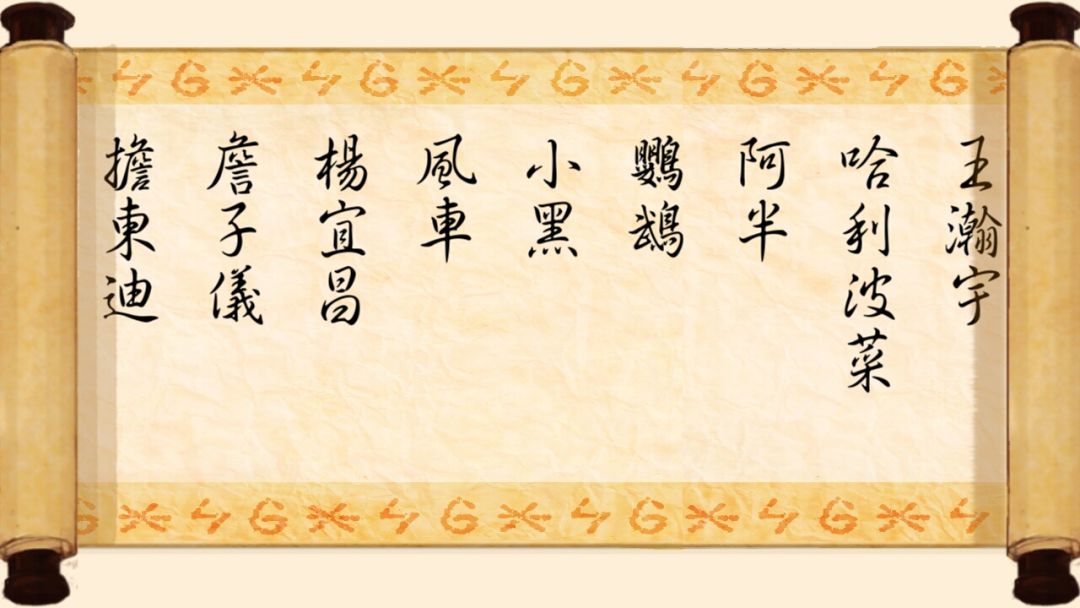 王瀚宇
哈利波菜
阿半
鸚鵡
小黑
風車
楊宜昌
詹子儀
擔東迪